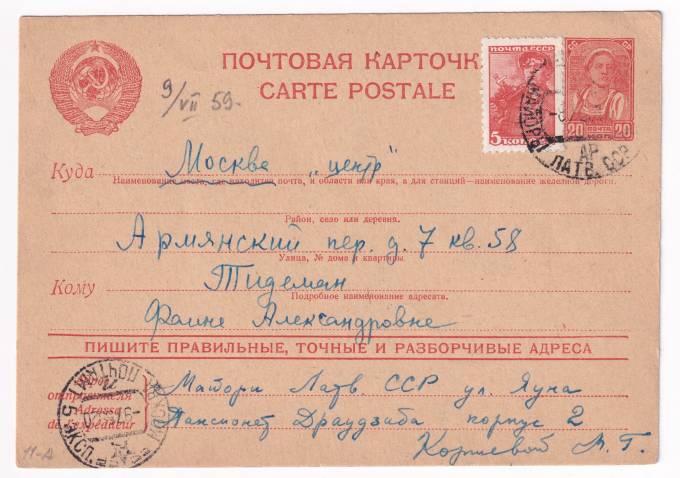 ПОЧТОВАЯ КАРТОЧК
CARTE POSTALE
9/VII 59.
ПОЧТА СССР
5 КОП
20 ПОЧТА КОП. 20
ЛАТВ. ССР
Куда Москва „центр"
Наименование места, где находится почта, и области или края, а для станций—наименование железной дороги.
Район, село или деревня.
Армянский пер. д. 7 кв. 58
Улица, № дома и квартиры.
Кому Тидеман
Подробное наименование адресата.
Фаине Александровне
ПИШИТЕ ПРАВИЛЬНЫЕ, ТОЧНЫЕ И РАЗБОРЧИВЫЕ АДРЕСА
отправителя Майори Латв ССР ул. Яуна
Adresse
de l'expéditeur Пансионат Драудзиба корпус 2
11-А